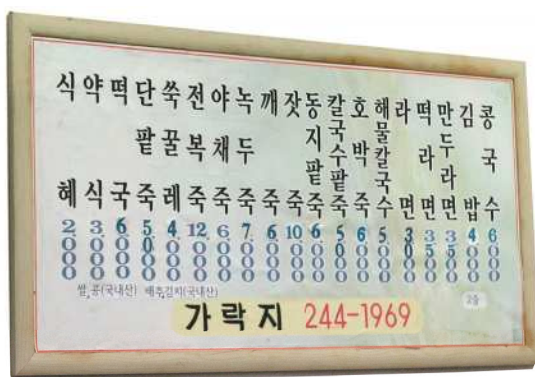 식혜 2,000
약식 3,000
떡국 6,000
단팥죽 5,000
쑥꿀레 4,000
전복죽 12,000
야채죽 6,000
녹두죽 7,000
깨죽 6,000
잣죽 10,000
동지팥죽 6,000
칼국수팥죽 5,000
호박죽 6,000
해물칼국수 5,000
라면 3,000
떡라면 3,500
만두라면 3,500
김밥 4,000
콩국수 6,000
쌀,콩(국내산) 배추,김치(국내산)
2줄
가락지 244-1969